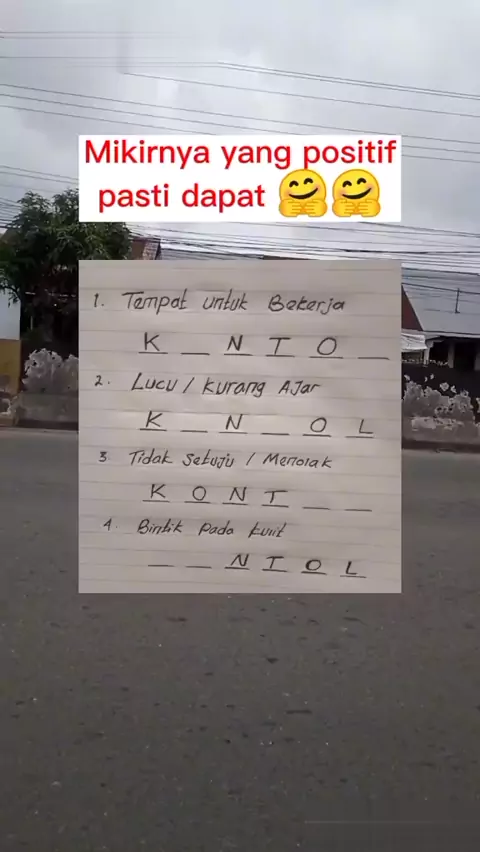 Mikirnya yang positif
pasti dapat 🤗🤗
1. Tempat untuk Bekerja
K _ N T O _
2. Lucu / Kurang Ajar
K _ N _ O L
3. Tidak Setuju / Menolak
K O N T _ _
4. Bintik Pada Kulit
_ _ N T O L